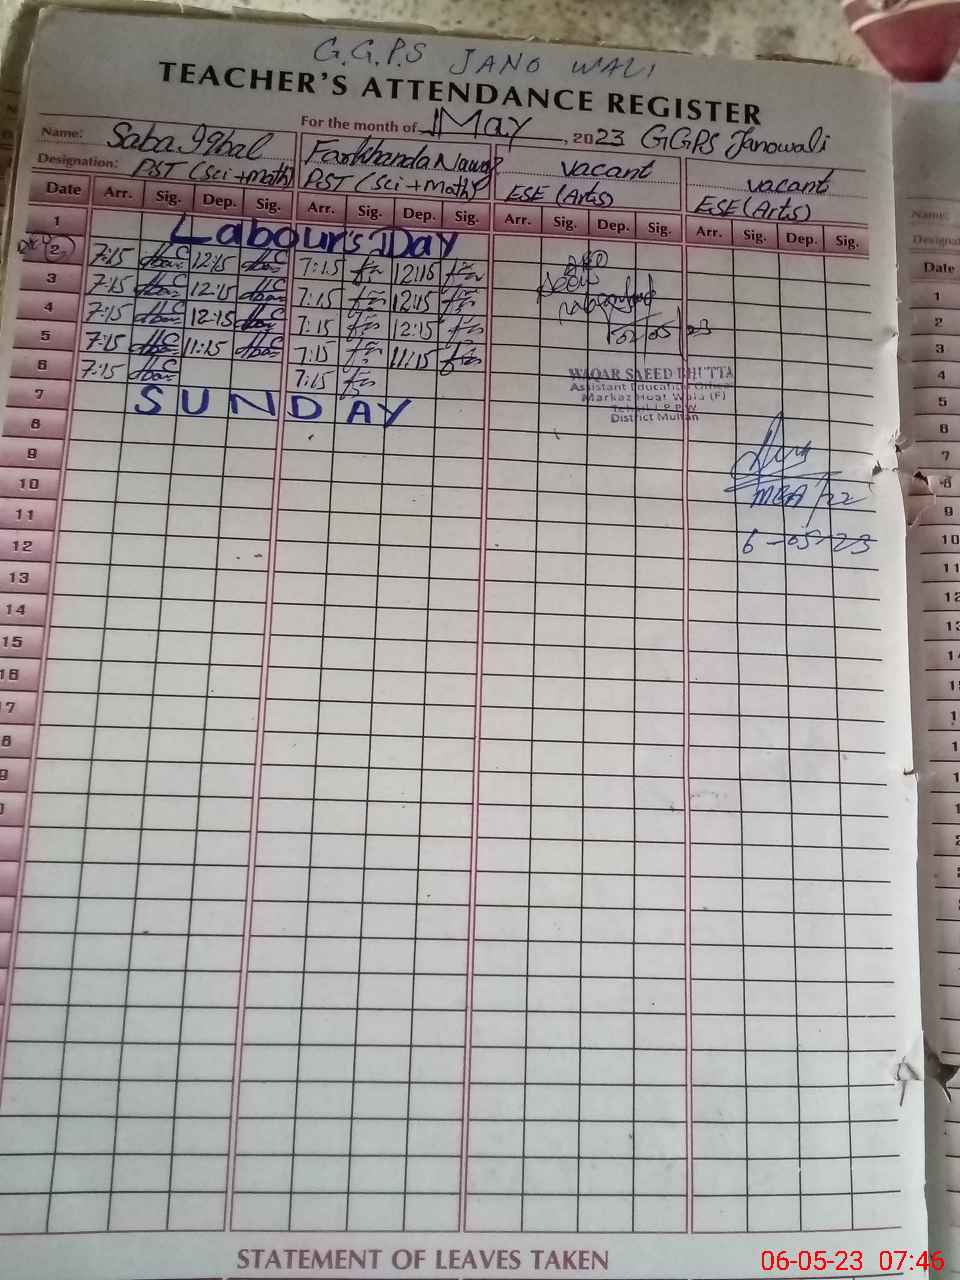 G.G.P.S JANO WALI
TEACHER'S ATTENDANCE REGISTER
For the month of May, 2023 GGPS Janowali
Name: Saba Iqbal Farkhanda Nawaz vacant vacant
Designation: PST (Sci+math) PST (Sci+math) ESE (Arts) ESE (Arts)
Date Arr. Sig. Dep. Sig. Arr. Sig. Dep. Sig. Arr. Sig. Dep. Sig. Arr. Sig. Dep. Sig.
1 Labour's Day
2 7:15 12:15 7:15 12:15
3 7:15 12:15 7:15 12:15
4 7:15 12:15 7:15 12:15
5 7:15 11:15 7:15 11:15
6 7:15 7:15
7 SUNDAY
8
9
10
11
12
13
14
15
02/05/23
WAQAR SAEED BHUTTA
Assistant Education Officer
Markaz Hoat Wala (F)
District Multan
MEA/22
6-05-23
STATEMENT OF LEAVES TAKEN
Name:
Date
1
2
3
4
5
6
7
8
9
10
11
12
13
14
06-05-23 07:46